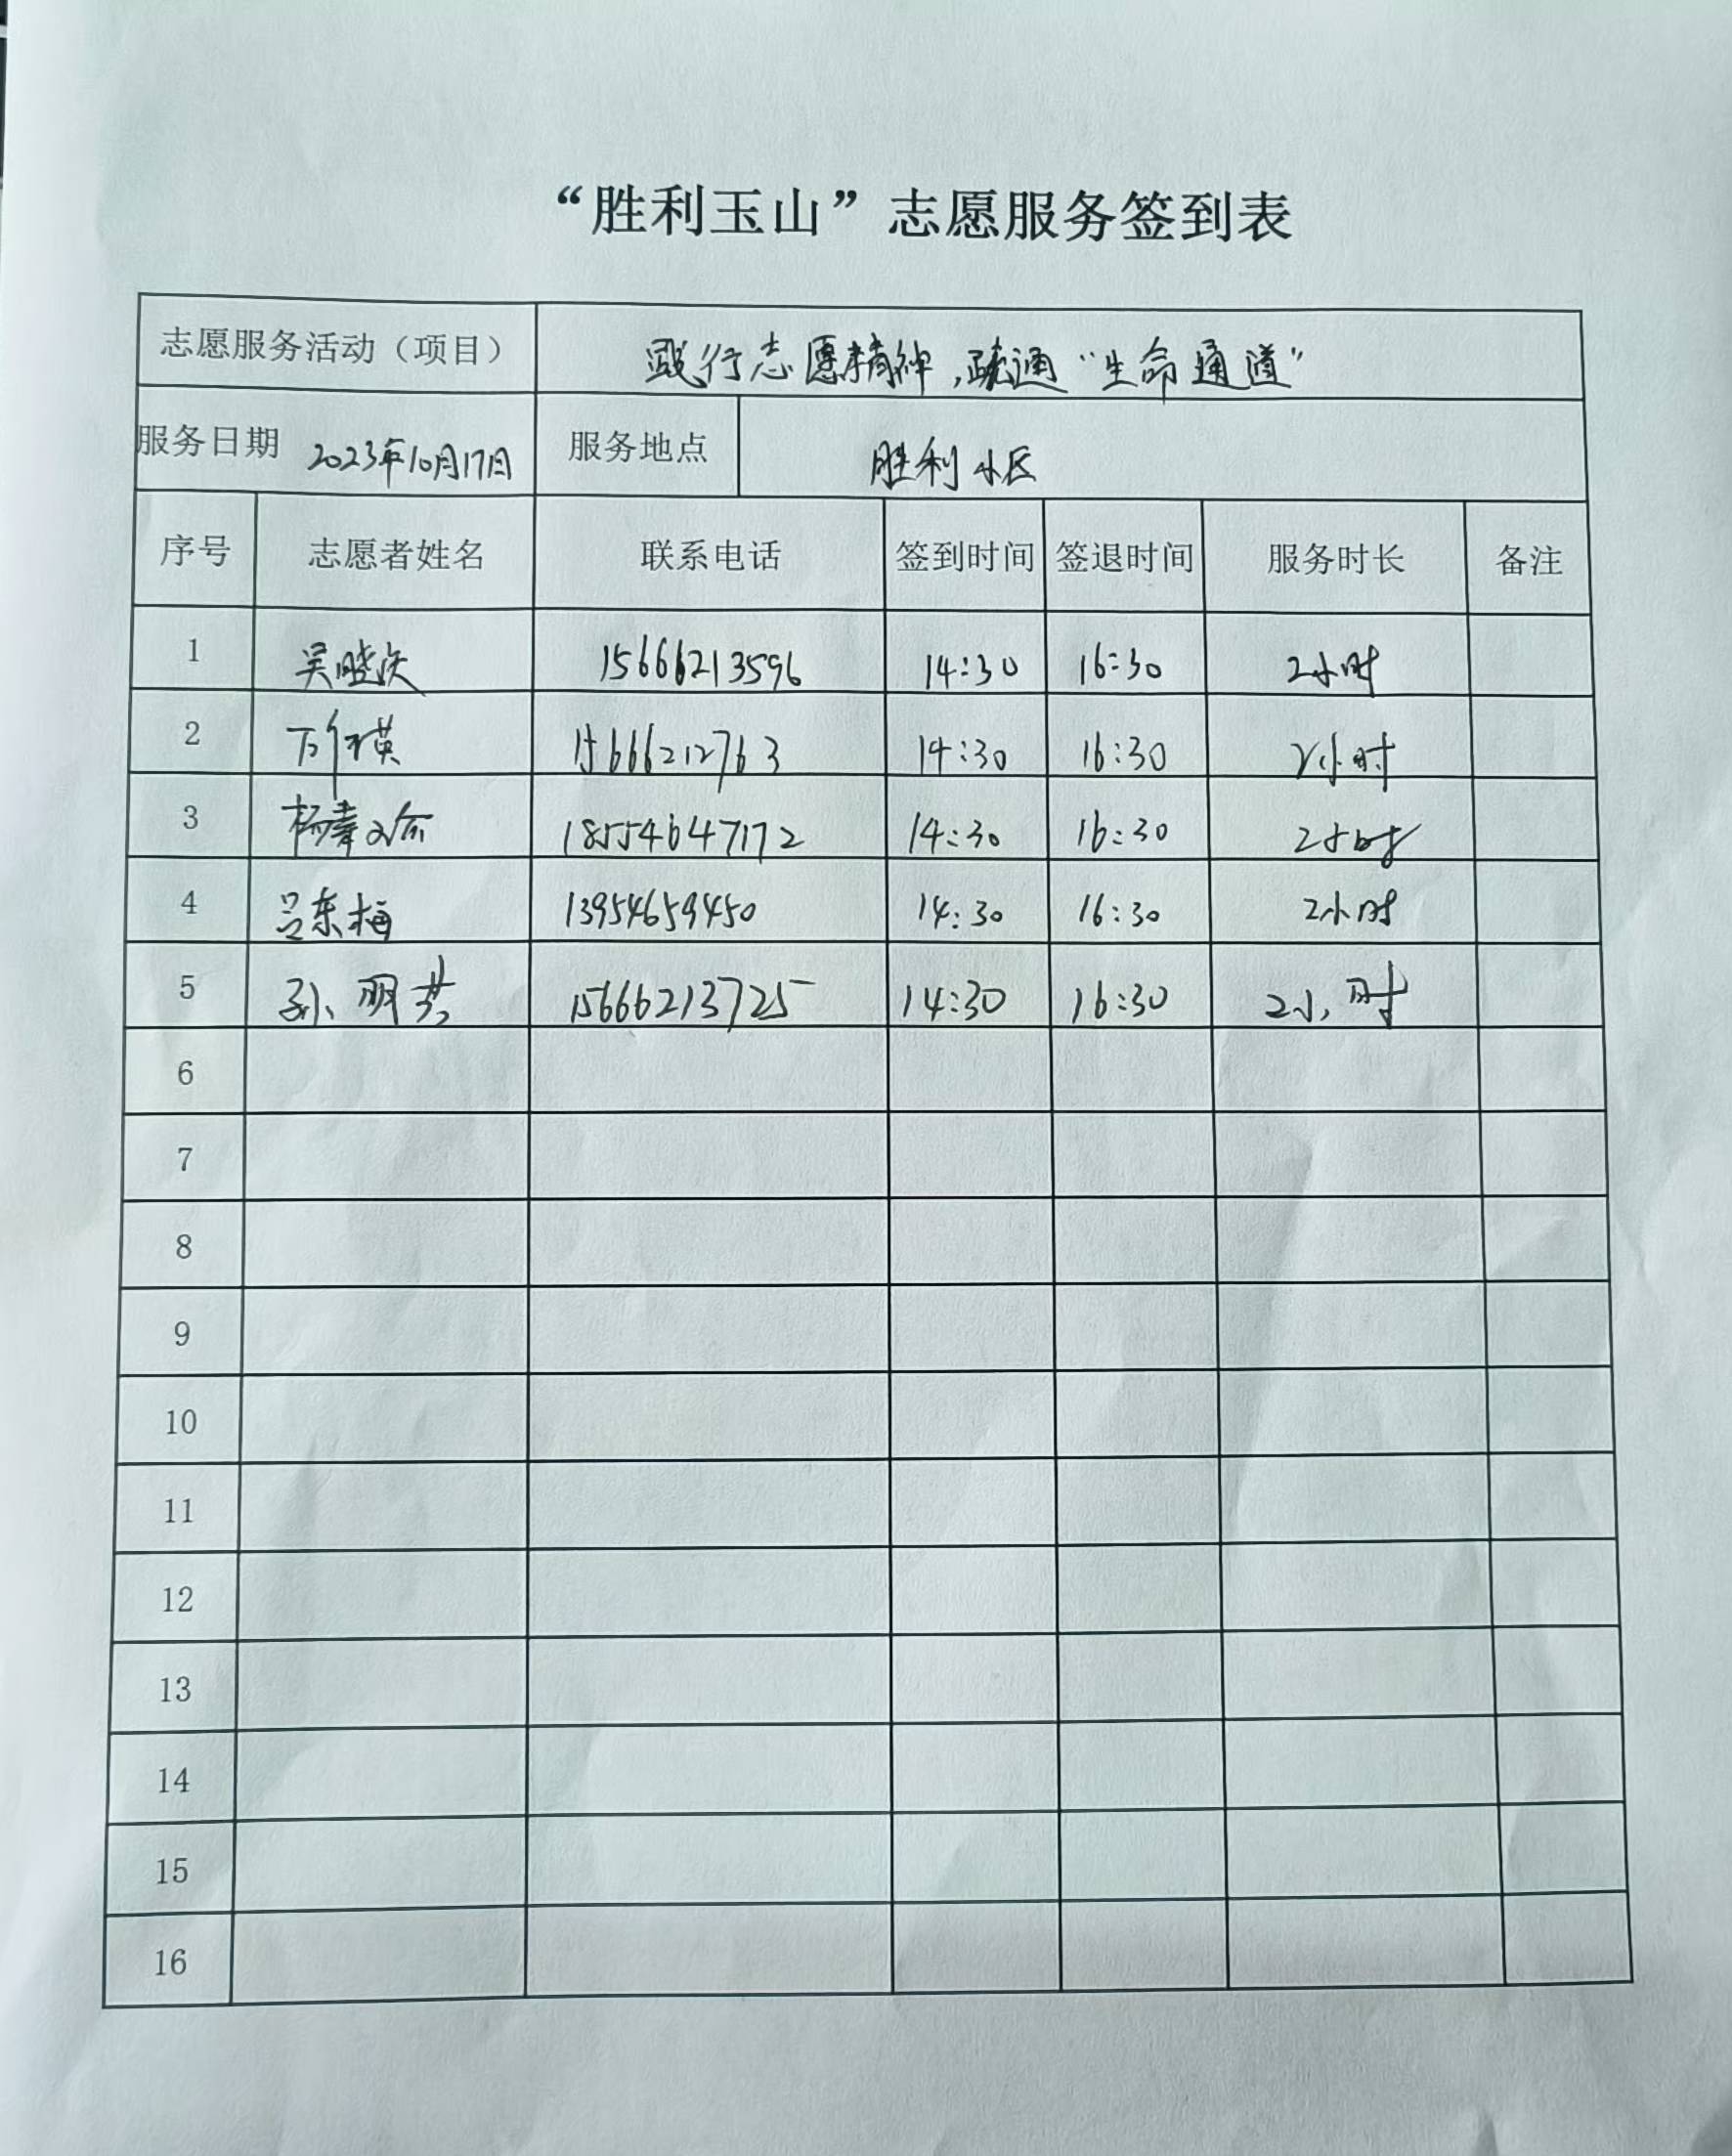 “胜利玉山”志愿服务签到表
志愿服务活动（项目） 践行志愿精神,疏通“生命通道”
服务日期 2023年10月17日 服务地点 胜利小区
序号 志愿者姓名 联系电话 签到时间 签退时间 服务时长 备注
1 吴晓 15666213596 14:30 16:30 2小时
2 15666212763 14:30 16:30 2小时
3 杨 18554647172 14:30 16:30 2小时
4 吕东梅 13954659450 14:30 16:30 2小时
5 孙明芸 15666213725 14:30 16:30 2小时
6
7
8
9
10
11
12
13
14
15
16